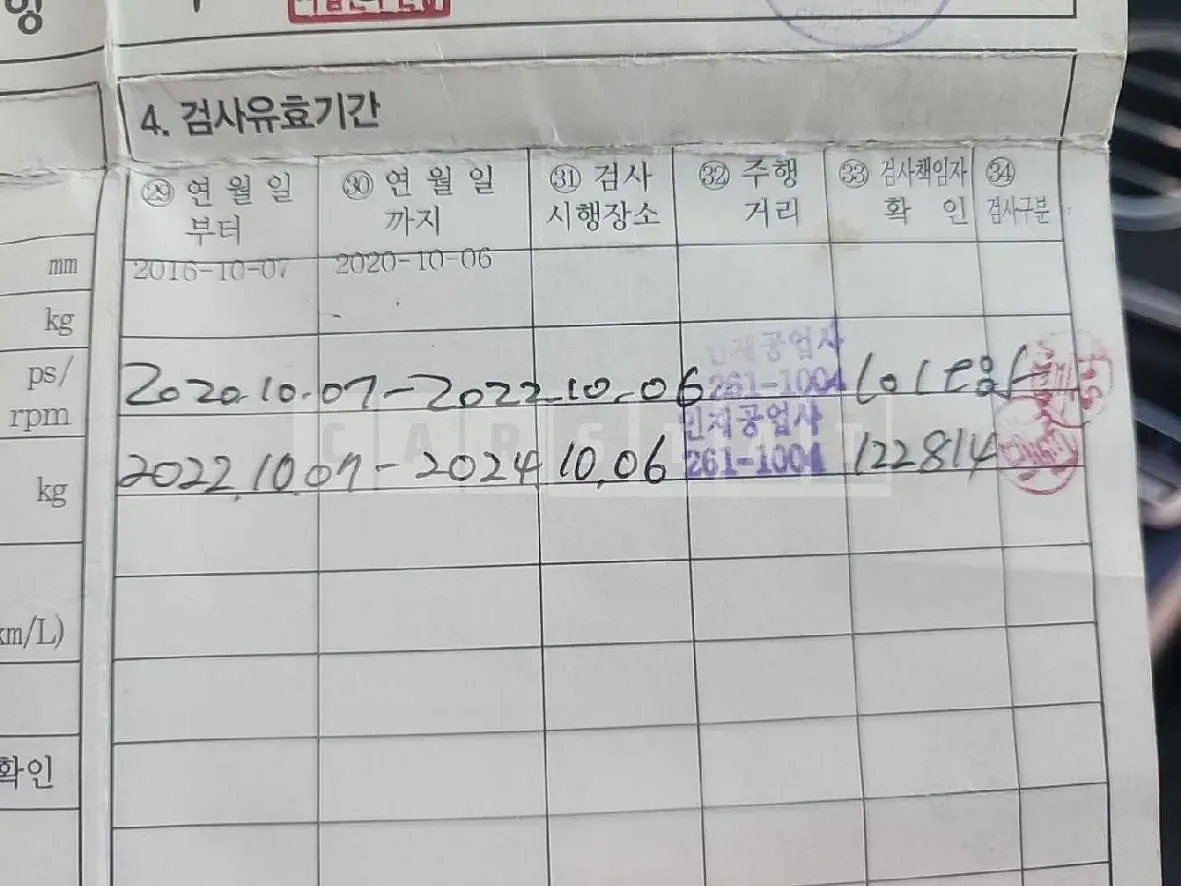 4. 검사유효기간
㉙ 연 월 일 부터
㉚ 연 월 일 까지
㉛ 검사 시행장소
㉜ 주행 거리
㉝ 검사책임자 확 인
㉞ 검사구분
mm
2016-10-07 2020-10-06
kg
ps/
rpm
2020.10.07-2022.10.06
공업사
261-1004
2022.10.07-2024.10.06 122814
공업사
261-1004
CARSTAT
kg
km/L)
확인